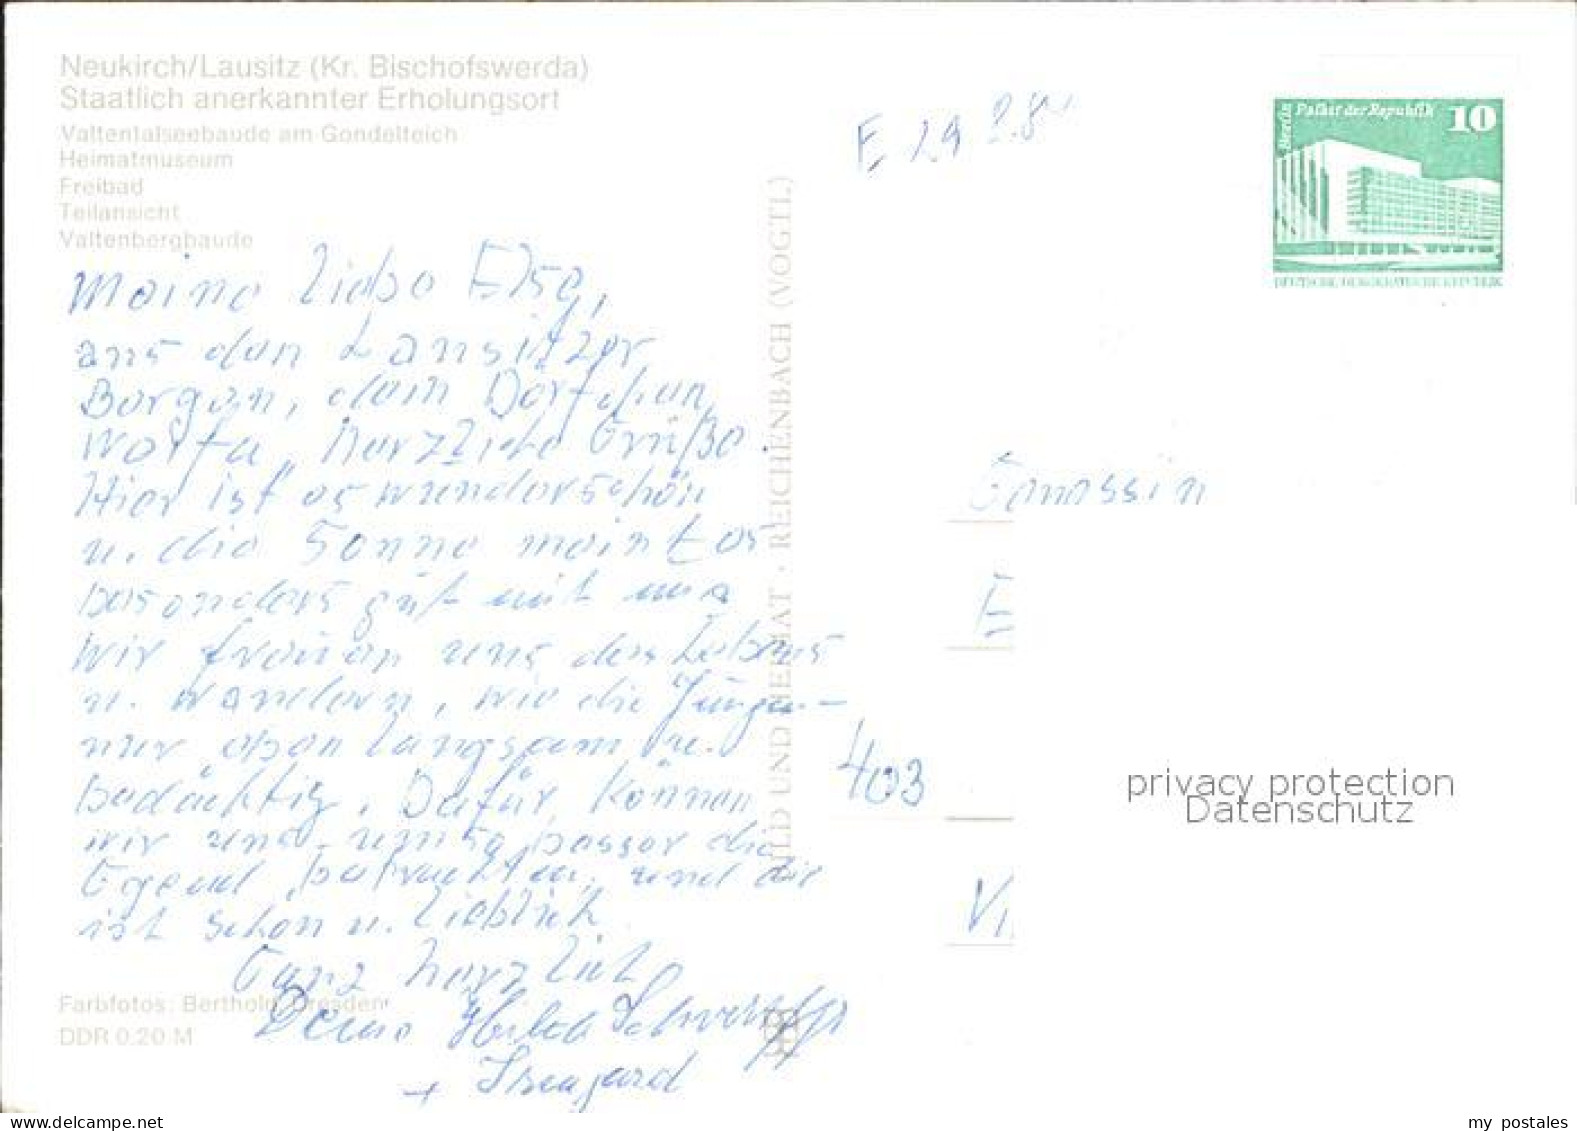 Neukirch/Lausitz (Kr. Bischofswerda)
Staatlich anerkannter Erholungsort
Valtentalseebaude am Gondelteich
Heimatmuseum
Freibad
Teilansicht
Valtenbergbaude
Meine liebe Else,
aus den Lausitzer
Bergen, dem Dörfchen
Weifa, herzliche Grüße.
Hier ist es wunderschön
u. die Sonne meint es
besonders gut mit uns
Wir freuen uns des Lebens
u. wandern, wie die Jungen-
nur eben langsam u.
bedächtig. Dafür können
wir uns umso besser die
Gegend betrachten, und die
ist schön u. lieblich
Ganz herzlich
Deine Hilde
+ Irmgard
Farbfotos: Berthold, Dresden
DDR 0,20 M
BILD UND HEIMAT · REICHENBACH (VOGTL.)
E 29 8.8
Berlin Palast der Republik 10
DEUTSCHE DEMOKRATISCHE REPUBLIK
Genossin
E
403
privacy protection
Datenschutz
my postales